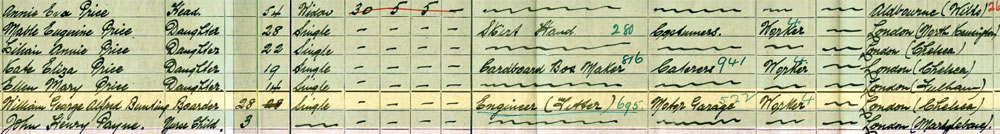 Annie Eva Price Head 54 Widow 30 5 5 – Aldbourne (Wilts) 26
Mable Eugenine Price Daughter 28 Single – – – – Skirt Hand 280 Costumers. Worker 4 London (North Kensington)
Lilian Annie Price Daughter 22 Single – – – – London (Chelsea)
Kate Eliza Price Daughter 19 Single – – – – Cardboard Box Maker 816 Caterers 941 Worker 4 London (Chelsea)
Ellen Mary Price Daughter 14 Single – – – – London (Fulham)
William George Alfred Bunting Boarder 28 Single – – – – Engineer (Fitter) 695 Motor Garage 572 Worker 4 London (Chelsea)
John Henry Payne. Nurse Child. 3 – – – – London (Marylebone)